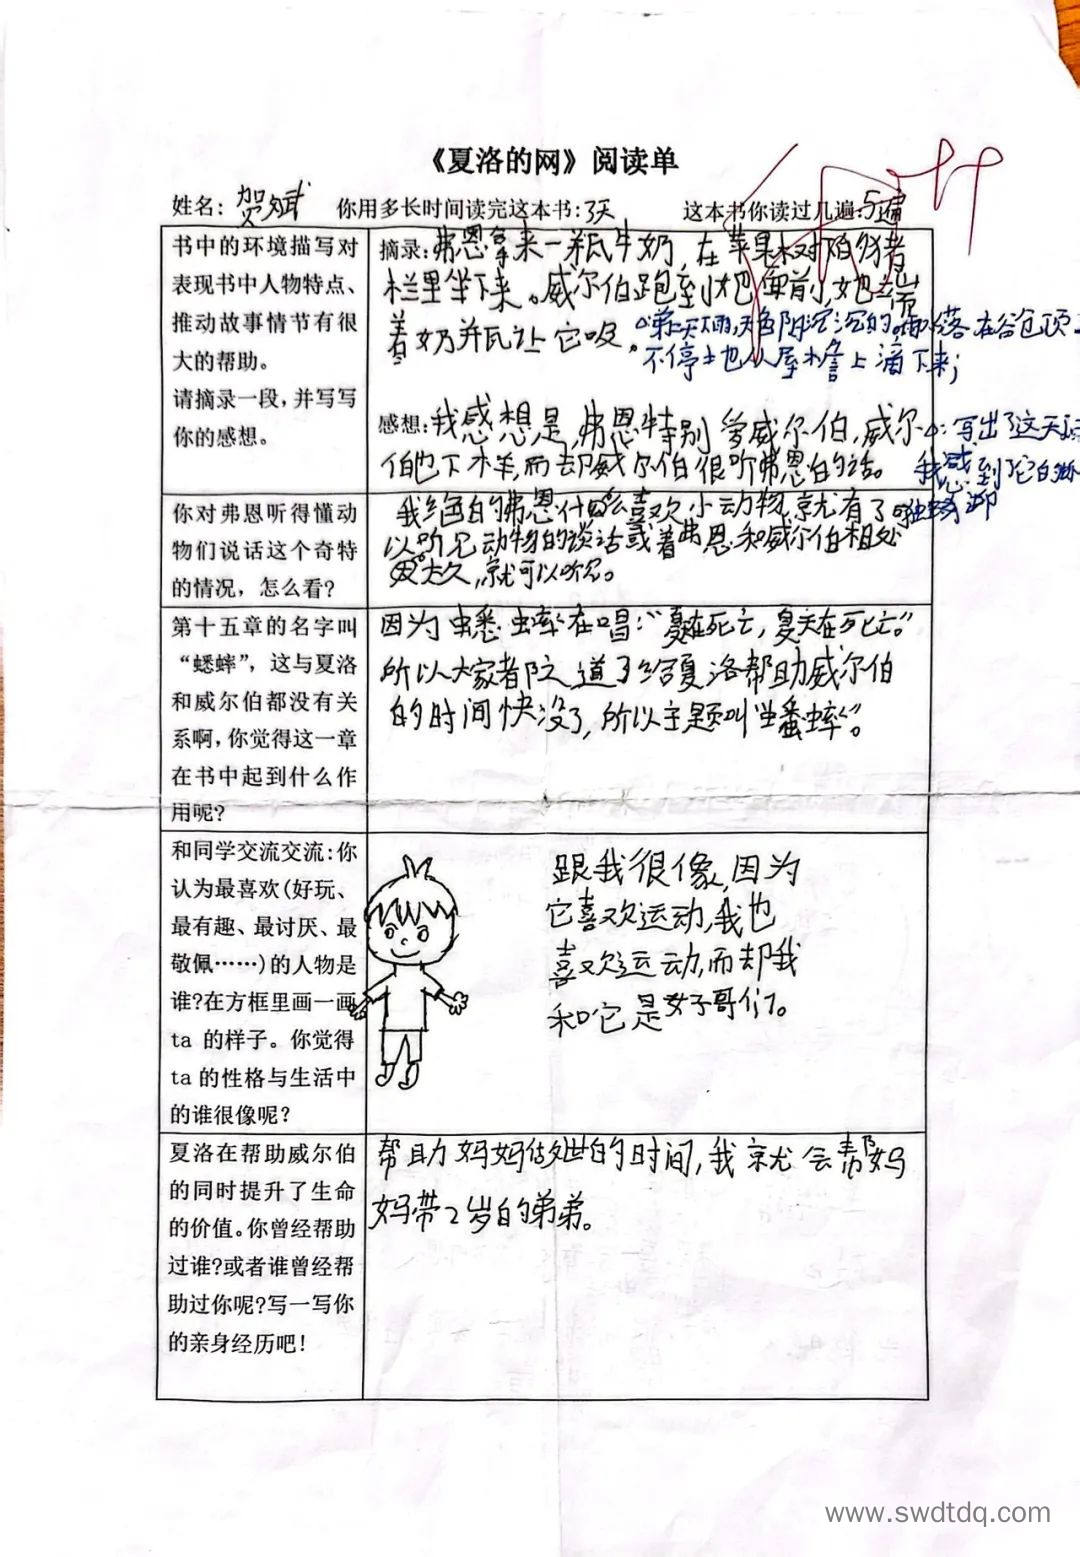 《夏洛的网》阅读单
姓名: 贺斌 你用多长时间读完这本书:3天 这本书你读过几遍:5遍
书中的环境描写对
表现书中人物特点、
推动故事情节有很
大的帮助。
请摘录一段,并写写
你的感想。
摘录:弗恩拿来一瓶牛奶,在苹果树阴猪
栏里坐下来。威尔伯跑到她面前,她拿
着奶瓶让它吸。
第二天下雨,天色阴沉沉的。雨落在谷仓顶上
不停地从屋檐上滴下来;
感想:我感想是,弗恩特别爱威尔伯,威尔
伯也不样,而却威尔伯很听弗恩的话。
写出了这天
我感到它的
孤独
你对弗恩听得懂动
物们说话这个奇特
的情况,怎么看?
我绝的弗恩什么喜欢小动物,就有了可
以听见动物的谈话或着弗恩和威尔伯相处
太久,就可以听见。
第十五章的名字叫
“蟋蟀”,这与夏洛
和威尔伯都没有关
系啊,你觉得这一章
在书中起到什么作
用呢?
因为蟋蟀在唱:“夏在死亡,夏天在死亡。”
所以大家都知道了给夏洛帮助威尔伯
的时间快没了,所以主题叫“蟋蟀”。
和同学交流交流:你
认为最喜欢(好玩、
最有趣、最讨厌、最
敬佩……)的人物是
谁?在方框里画一画
ta 的样子。你觉得
ta 的性格与生活中
的谁很像呢?
跟我很像,因为
它喜欢运动,我也
喜欢运动,而却我
和它是好哥们。
夏洛在帮助威尔伯
的同时提升了生命
的价值。你曾经帮助
过谁?或者谁曾经帮
助过你呢?写一写你
的亲身经历吧!
帮助妈妈做的时间,我就会帮妈
妈带2岁的弟弟。
www.swdtdq.com